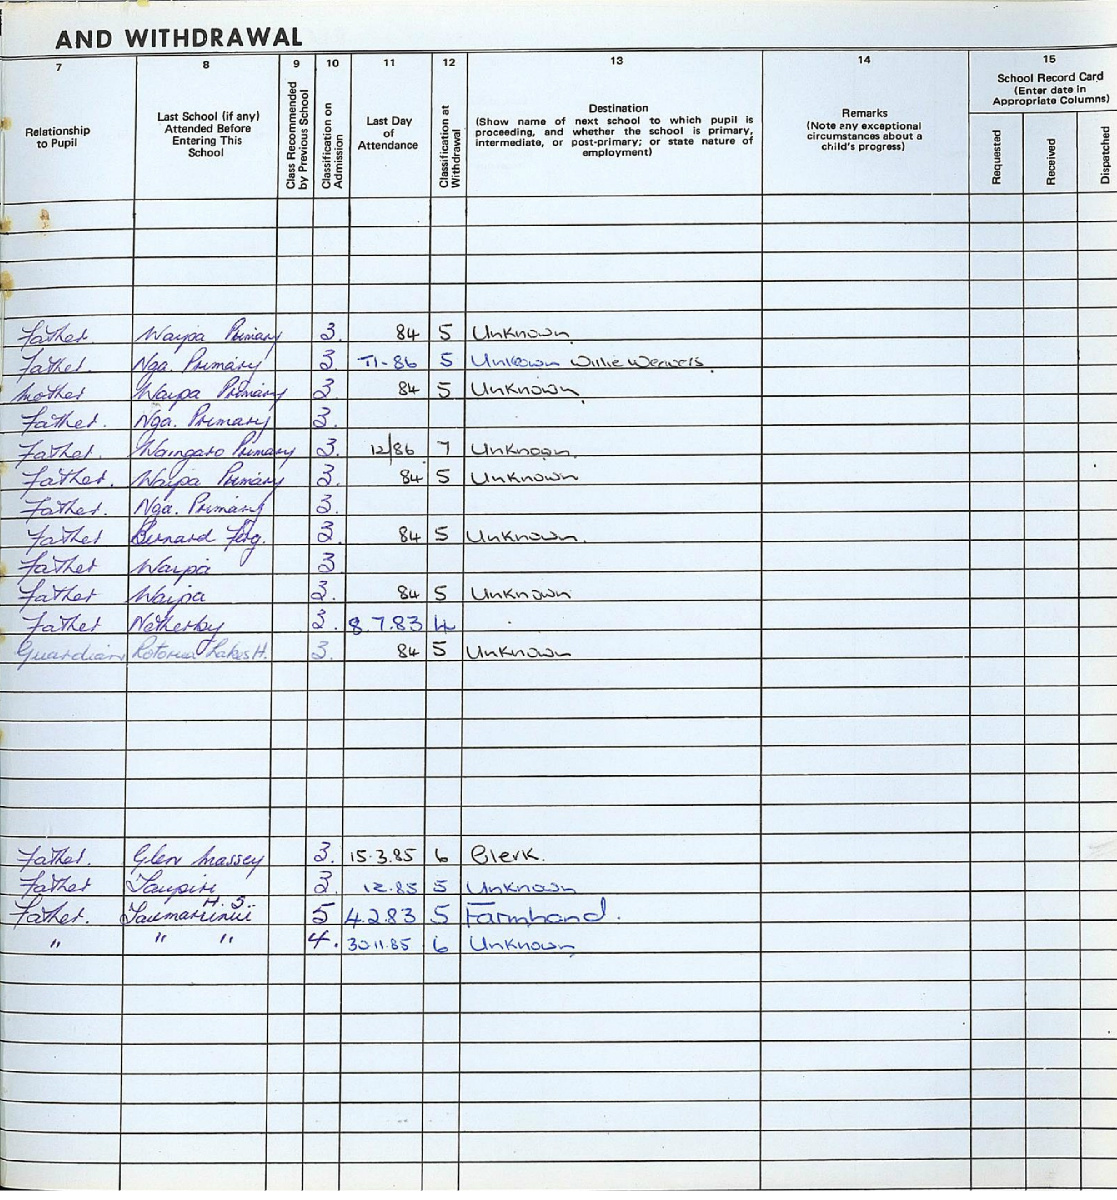 AND WITHDRAWAL
7 8 9 10 11 12 13 14 15
Relationship to Pupil
Last School (if any) Attended Before Entering This School
Class Recommended by Previous School
Classification on Admission
Last Day of Attendance
Classification at Withdrawal
Destination
(Show name of next school to which pupil is proceeding, and whether the school is primary, intermediate, or post-primary; or state nature of employment)
Remarks
(Note any exceptional circumstances about a child's progress)
School Record Card
(Enter date in Appropriate Columns)
Requested
Received
Dispatched
Father Waipa Primary 3. 84 5 Unknown
Father. Nga. Primary 3. 11-86 5 Unknown Willie Weavers.
Mother Waipa Primary 3 84 5 Unknown
Father. Nga. Primary 3.
Father. Waingaro Primary 3. 12/86 7 Unknown.
Father. Waipa Primary 3. 84 5 Unknown
Father. Nga. Primary 3.
Father Bernard Ferg. 3. 84 5 Unknown.
Father Waipa 3
Father Waipa 3. 84 5 Unknown
Father Netherby 3. 8.7.83 4
Guardian Rotorua Lakes H. 3. 84 5 Unknown
Father. Glen Massey 3. 15.3.85 6 Clerk.
Father Taupiri 3. 12.85 5 Unknown
Father. Taumarunui H.S. 5 4.2.83 5 Farmhand.
" " " 4. 30.11.85 6 Unknown